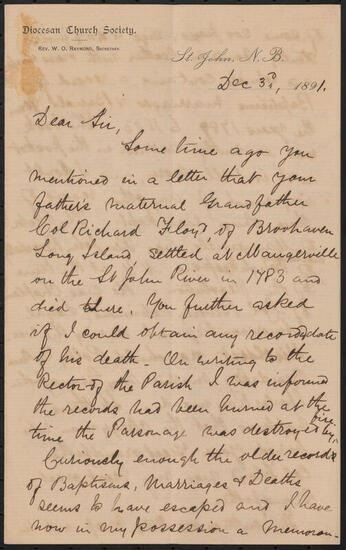 Diocesan Church Society.
Rev. W. O. Raymond, Secretary.
St. John, N. B.
Dec 3rd, 1891.
Dear Sir,
Some time ago you
mentioned in a letter that your
father's maternal Grandfather
Col Richard Floyd, of Brookhaven
Long Island, settled at Maugerville
on the St John River in 1783 and
died there. You further asked
if I could obtain any record of date
of his death. On writing to the
Rector of the Parish I was informed
the records had been burned at the
time the Parsonage was destroyed by fire.
Curiously enough the older records
of Baptisms, Marriages & Deaths
seems to have escaped and I have
now in my possession a memoran-